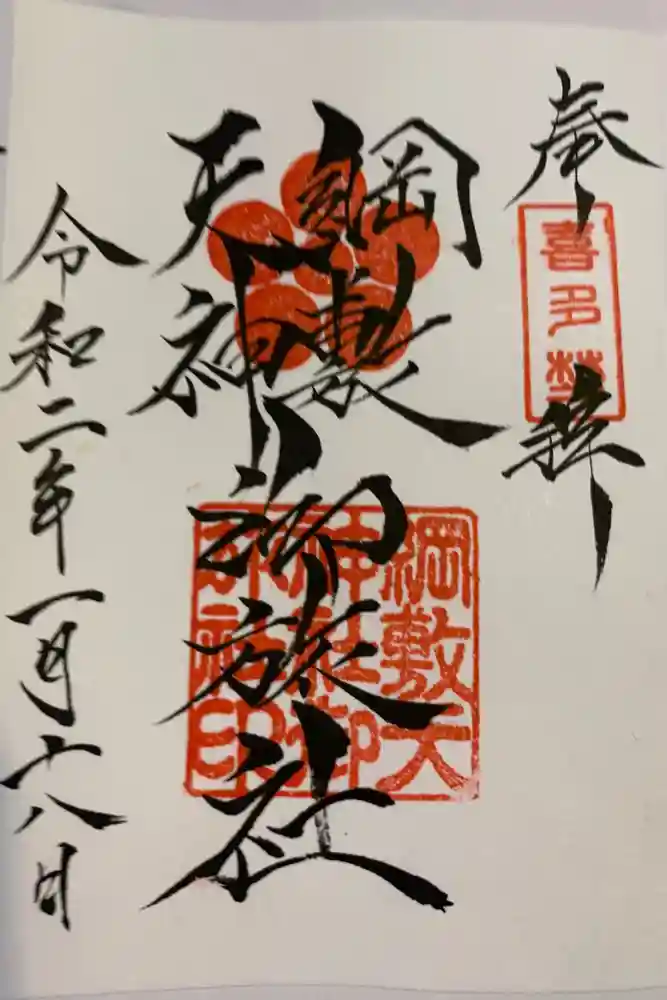 奉拝
喜多埜
綱敷
天神
御旅社
綱敷天
神社御
旅社印
令和二年一月十八日